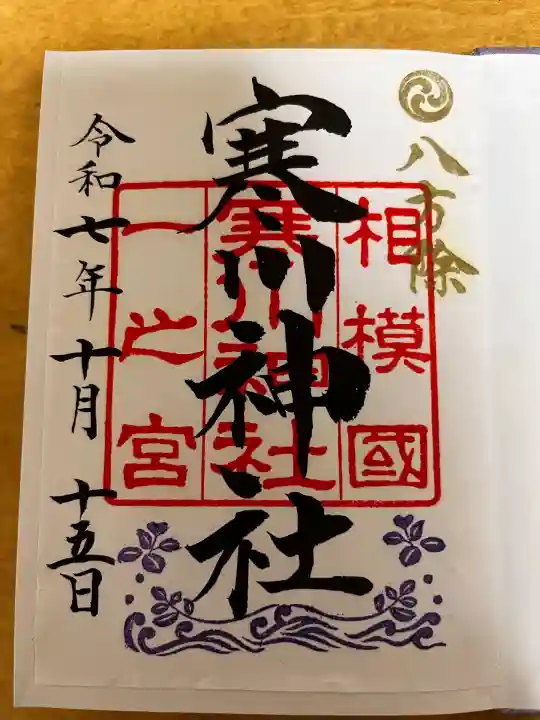 八方除
相模國
寒川神社
一之宮
寒川神社
令和七年十月十五日